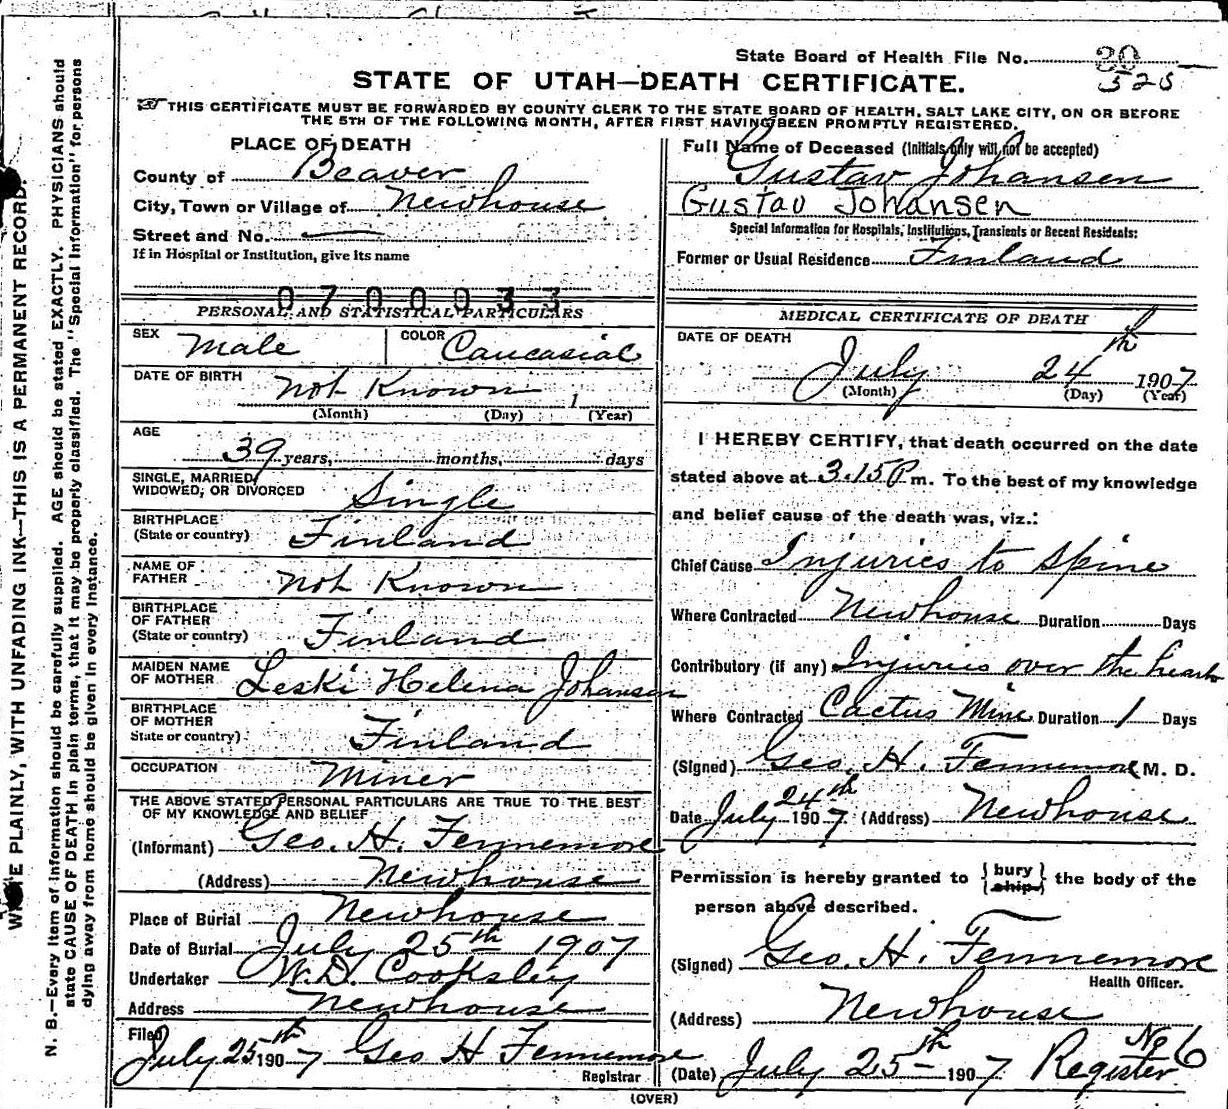 State Board of Health File No. 20
525
STATE OF UTAH—DEATH CERTIFICATE.
THIS CERTIFICATE MUST BE FORWARDED BY COUNTY CLERK TO THE STATE BOARD OF HEALTH, SALT LAKE CITY, ON OR BEFORE
THE 5TH OF THE FOLLOWING MONTH, AFTER FIRST HAVING BEEN PROMPTLY REGISTERED.
PLACE OF DEATH
County of Beaver
City, Town or Village of Newhouse
Street and No. —
If in Hospital or Institution, give its name
0700033
PERSONAL AND STATISTICAL PARTICULARS
SEX Male COLOR Caucasial
DATE OF BIRTH not Known 1
(Month) (Day) (Year)
AGE
39 years, months, days
SINGLE, MARRIED,
WIDOWED, OR DIVORCED Single
BIRTHPLACE
(State or country) Finland
NAME OF
FATHER not Known
BIRTHPLACE
OF FATHER
(State or country) Finland
MAIDEN NAME
OF MOTHER Leski Helena Johansen
BIRTHPLACE
OF MOTHER
State or country) Finland
OCCUPATION Miner
THE ABOVE STATED PERSONAL PARTICULARS ARE TRUE TO THE BEST
OF MY KNOWLEDGE AND BELIEF
(Informant) Geo. H. Fennemore
(Address) Newhouse
Place of Burial Newhouse
Date of Burial July 25th 1907
Undertaker W.D. Cooksley
Address Newhouse
Filed
July 25th 1907 Geo H Fennemore
Registrar
Full Name of Deceased (Initials only will not be accepted)
Gustav Johansen
Gustav Johansen
Special Information for Hospitals, Institutions, Transients or Recent Residents:
Former or Usual Residence Finland
MEDICAL CERTIFICATE OF DEATH
DATE OF DEATH
July 24th 1907
(Month) (Day) (Year)
I HEREBY CERTIFY, that death occurred on the date
stated above at 3.15 P m. To the best of my knowledge
and belief cause of the death was, viz.:
Chief Cause Injuries to Spine
Where Contracted Newhouse Duration Days
Contributory (if any) Injuries over the heart
Where Contracted Cactus Mine Duration 1 Days
(Signed) Geo. H. Fennemore M. D.
Date July 24th 1907 (Address) Newhouse
Permission is hereby granted to {bury} the body of the
{ship}
person above described.
(Signed) Geo. H. Fennemore
Health Officer.
(Address) Newhouse
(Date) July 25th 1907 Register No 6
(OVER)
WRITE PLAINLY, WITH UNFADING INK—THIS IS A PERMANENT RECORD.
N. B.—Every item of information should be carefully supplied. AGE should be stated EXACTLY. PHYSICIANS should
state CAUSE OF DEATH in plain terms, that it may be properly classified. The "Special Information" for persons
dying away from home should be given in every instance.